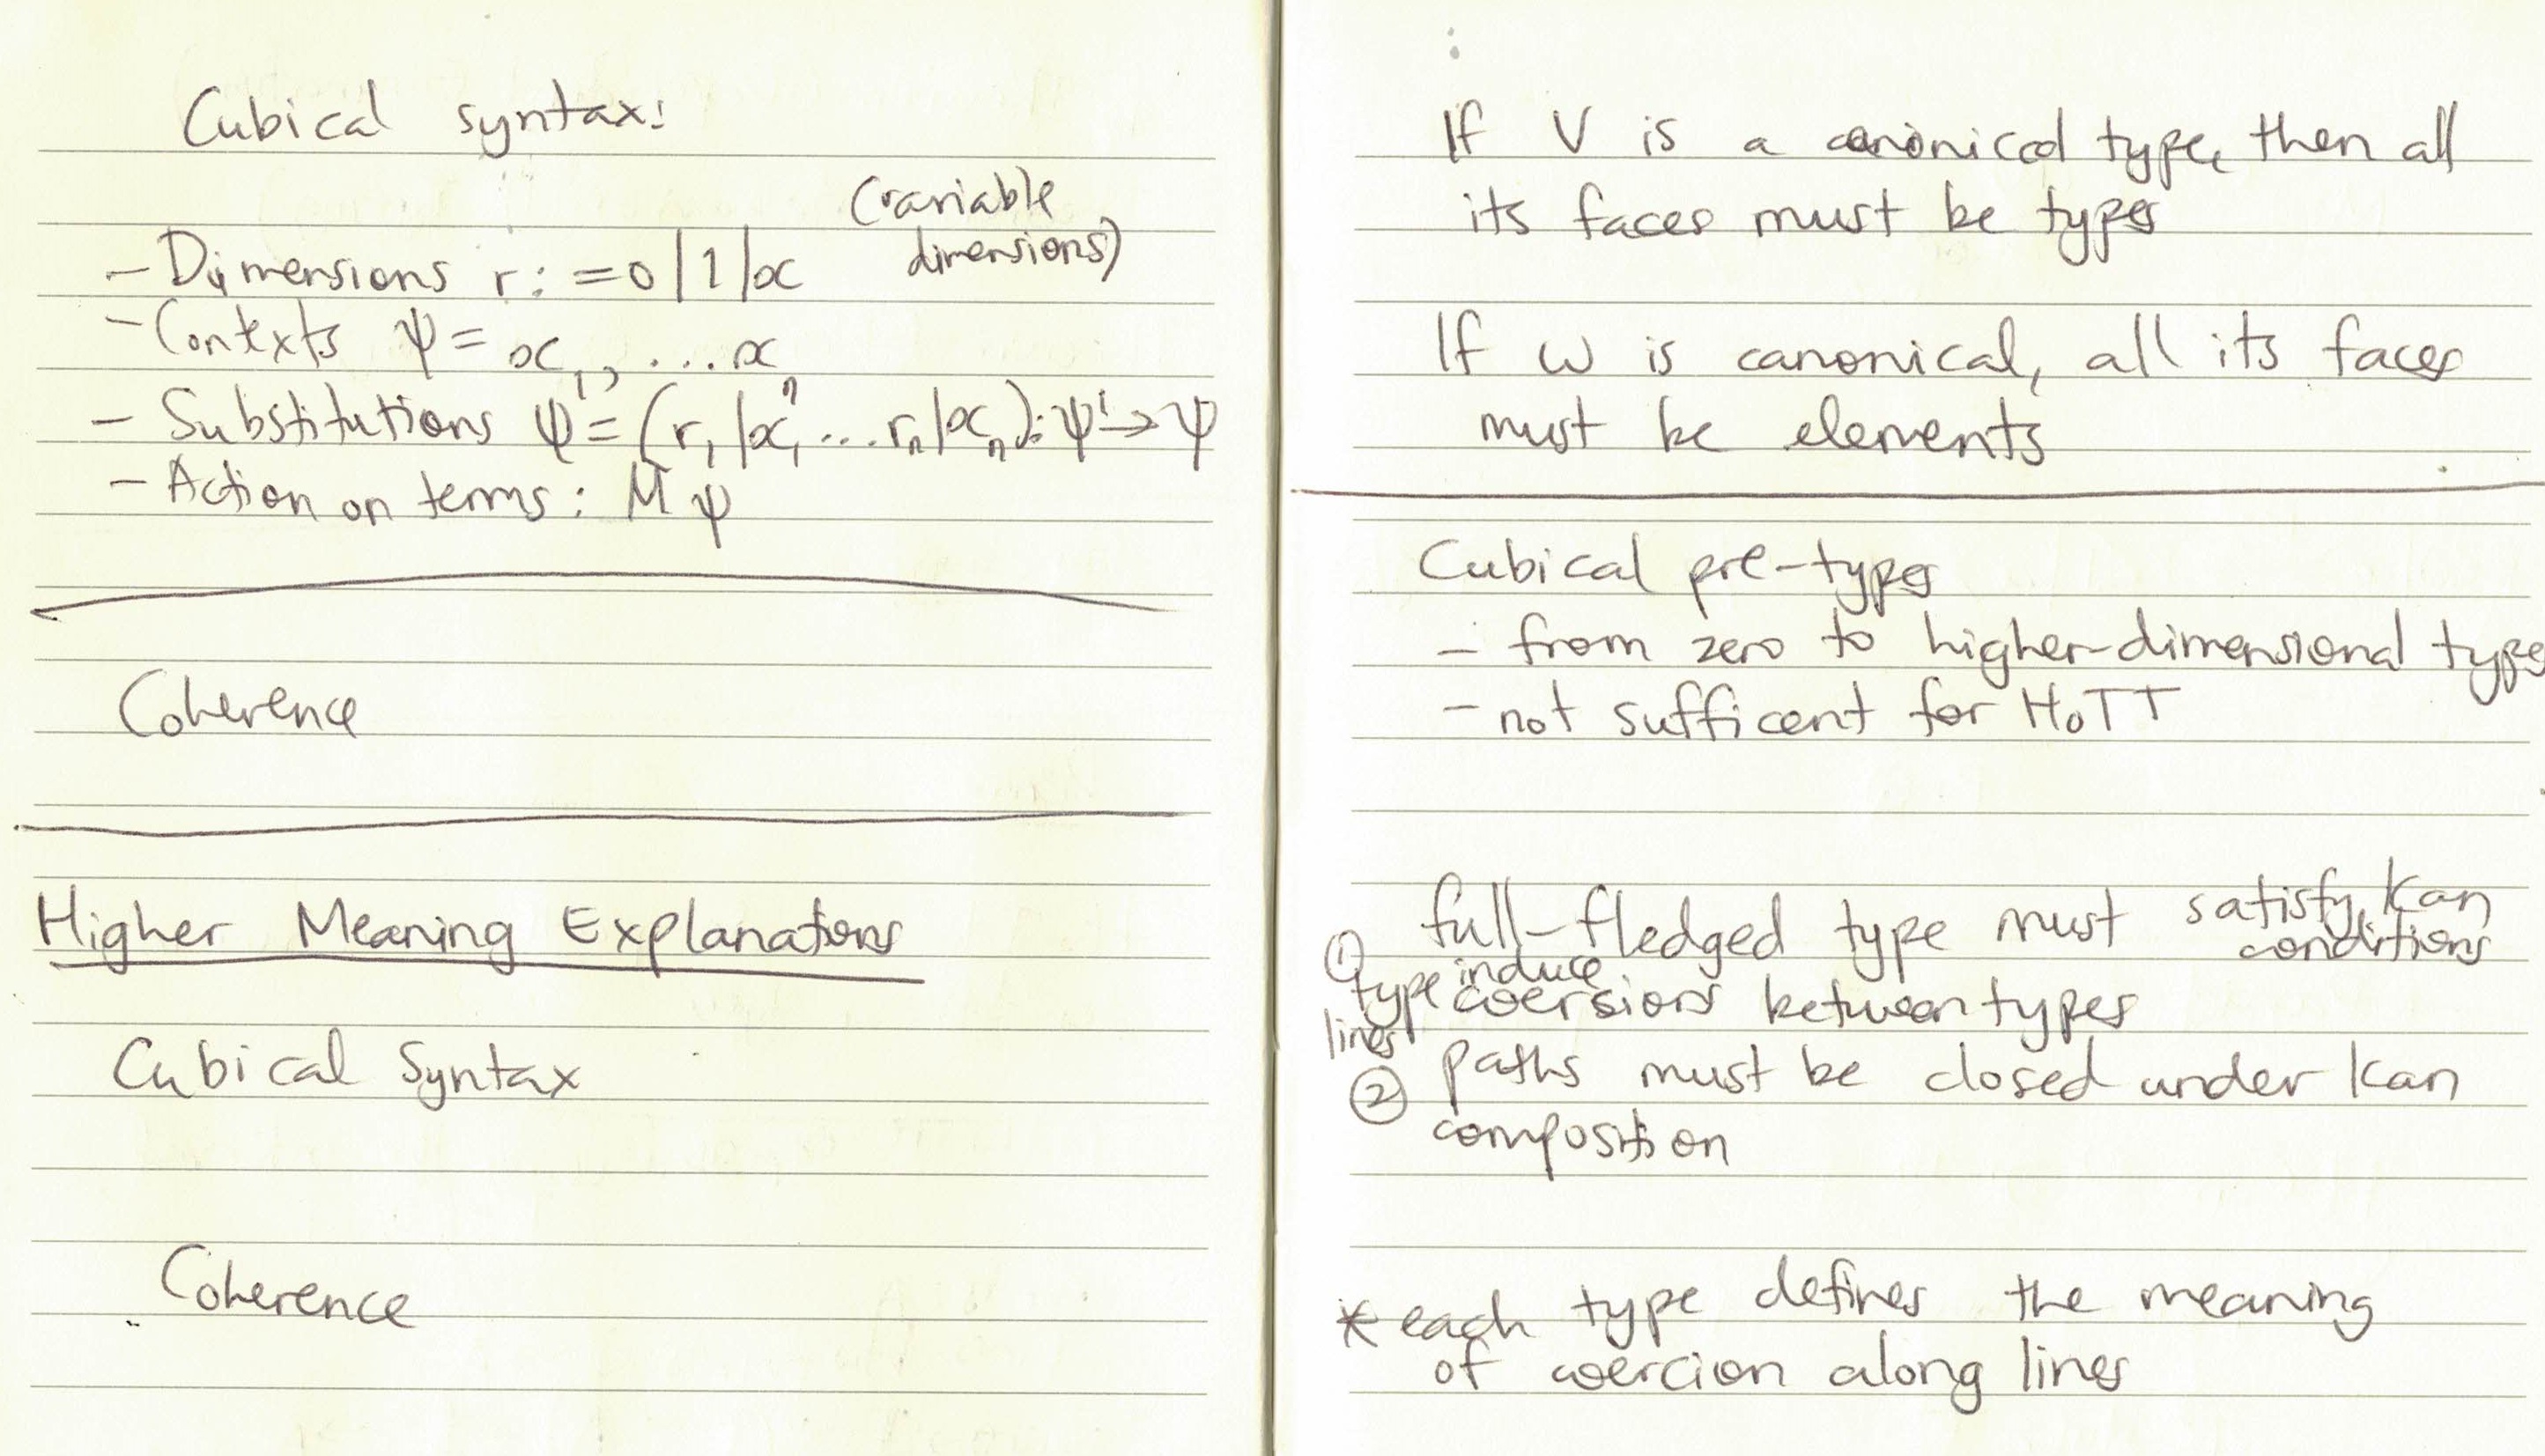 Cubical syntax:
(variable
dimensions)
- Dimensions r: = 0 | 1 | x
- Contexts ψ = x₁, ... xₙ
- Substitutions ψ = (r₁ | x₁ ... rₙ | xₙ): ψ' → ψ
- Action on terms: Mψ
Coherence
Higher Meaning Explanations
Cubical Syntax
Coherence
If V is a canonical type, then all
its faces must be types
If w is canonical, all its faces
must be elements
Cubical pre-types
- from zero to higher-dimensional types
- not sufficent for HoTT
full-fledged type must satisfy Kan
conditions
① type lines induce coersions between types
② paths must be closed under Kan
composition
* each type defines the meaning
of coercion along lines